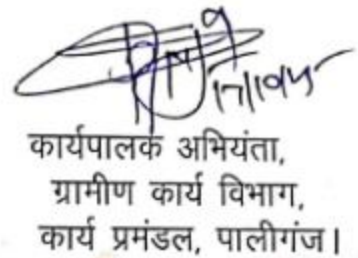 कार्यपालक अभियंता,
ग्रामीण कार्य विभाग,
कार्य प्रमंडल, पालीगंज।